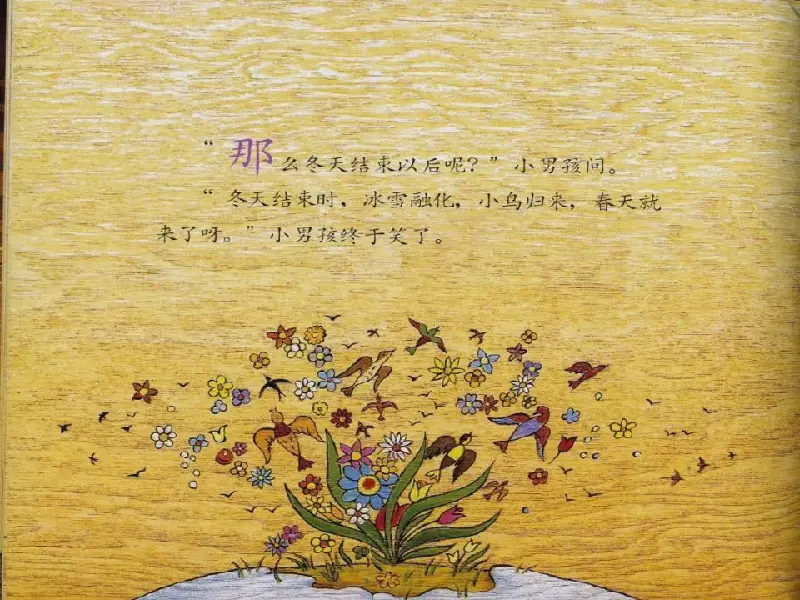 “那么冬天结束以后呢？”小男孩问。
“冬天结束时，冰雪融化，小鸟归来，春天就
来了呀。”小男孩终于笑了。